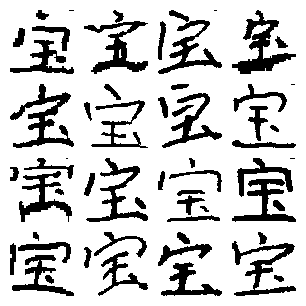 宝宝宝宝
宝宝宝宝
宝宝宝宝
宝宝宝宝